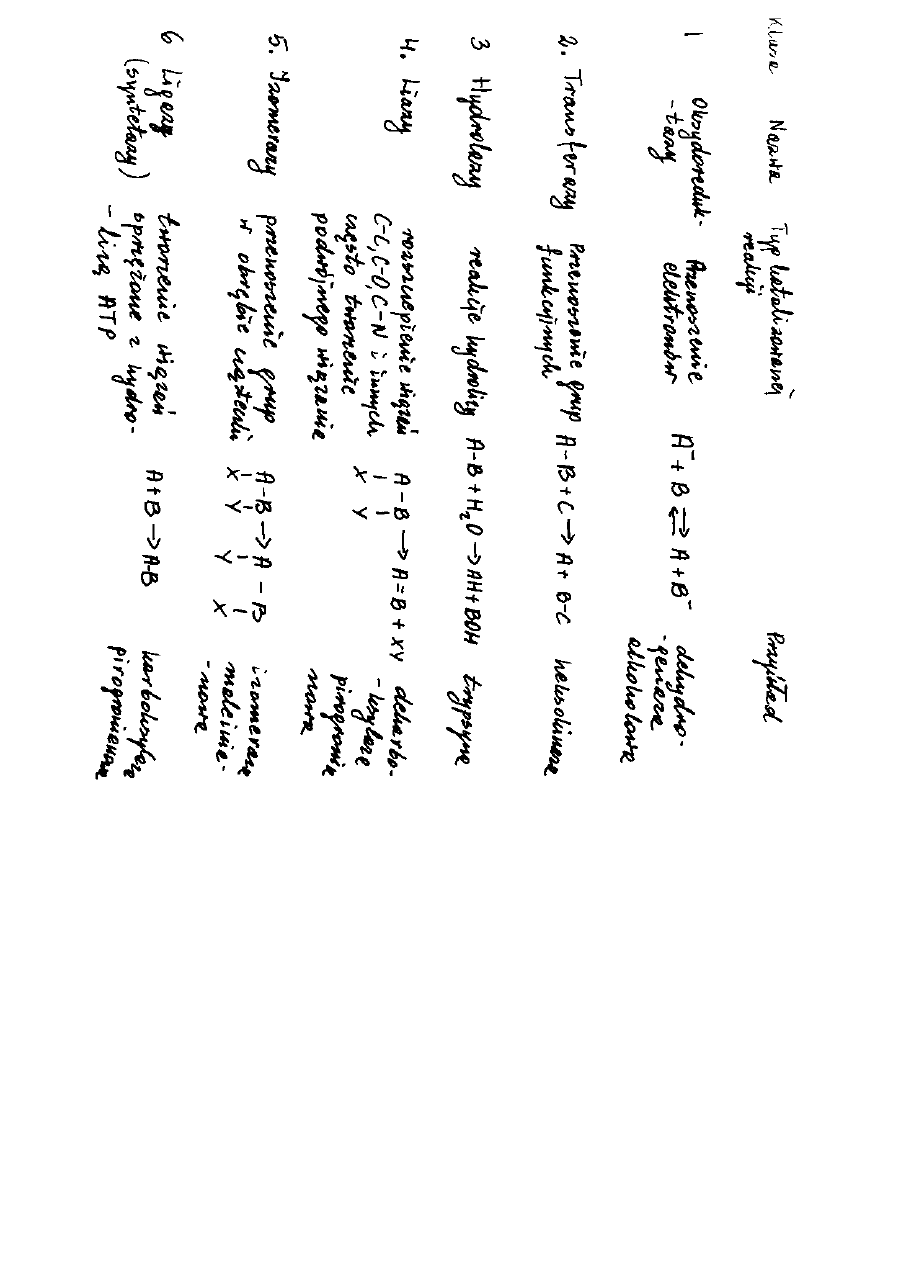 Klasa Nazwa Typ katalizowanej reakcji Przykład
1 Oksydoreduk-
-tazy
Przenoszenie
elektronów
A⁻ + B ⇌ A + B⁻
dehydro-
-genaza
alkoholowa
2. Transferazy
Przenoszenie grup
funkcyjnych
A-B + C → A + B-C
heksokinaza
3 Hydrolazy
reakcje hydrolizy
A-B + H₂O → AH + BOH
trypsyna
4. Liazy
rozszczepienie wiązań
C-C, C-O, C-N i innych
często tworzenie
podwójnego wiązania
A - B → A = B + XY
X Y
dekarbo-
-ksylaza
pirogronia
nowa
5. Izomerazy
przenoszenie grup
w obrębie cząsteczki
A-B → A - B
X Y Y X
izomeraza
maleinia-
-nowa
6 Ligazy
(syntetazy)
tworzenie wiązań
sprzężone z hydro-
-lizą ATP
A+B → A-B
karboksylaza
pirogronianowa